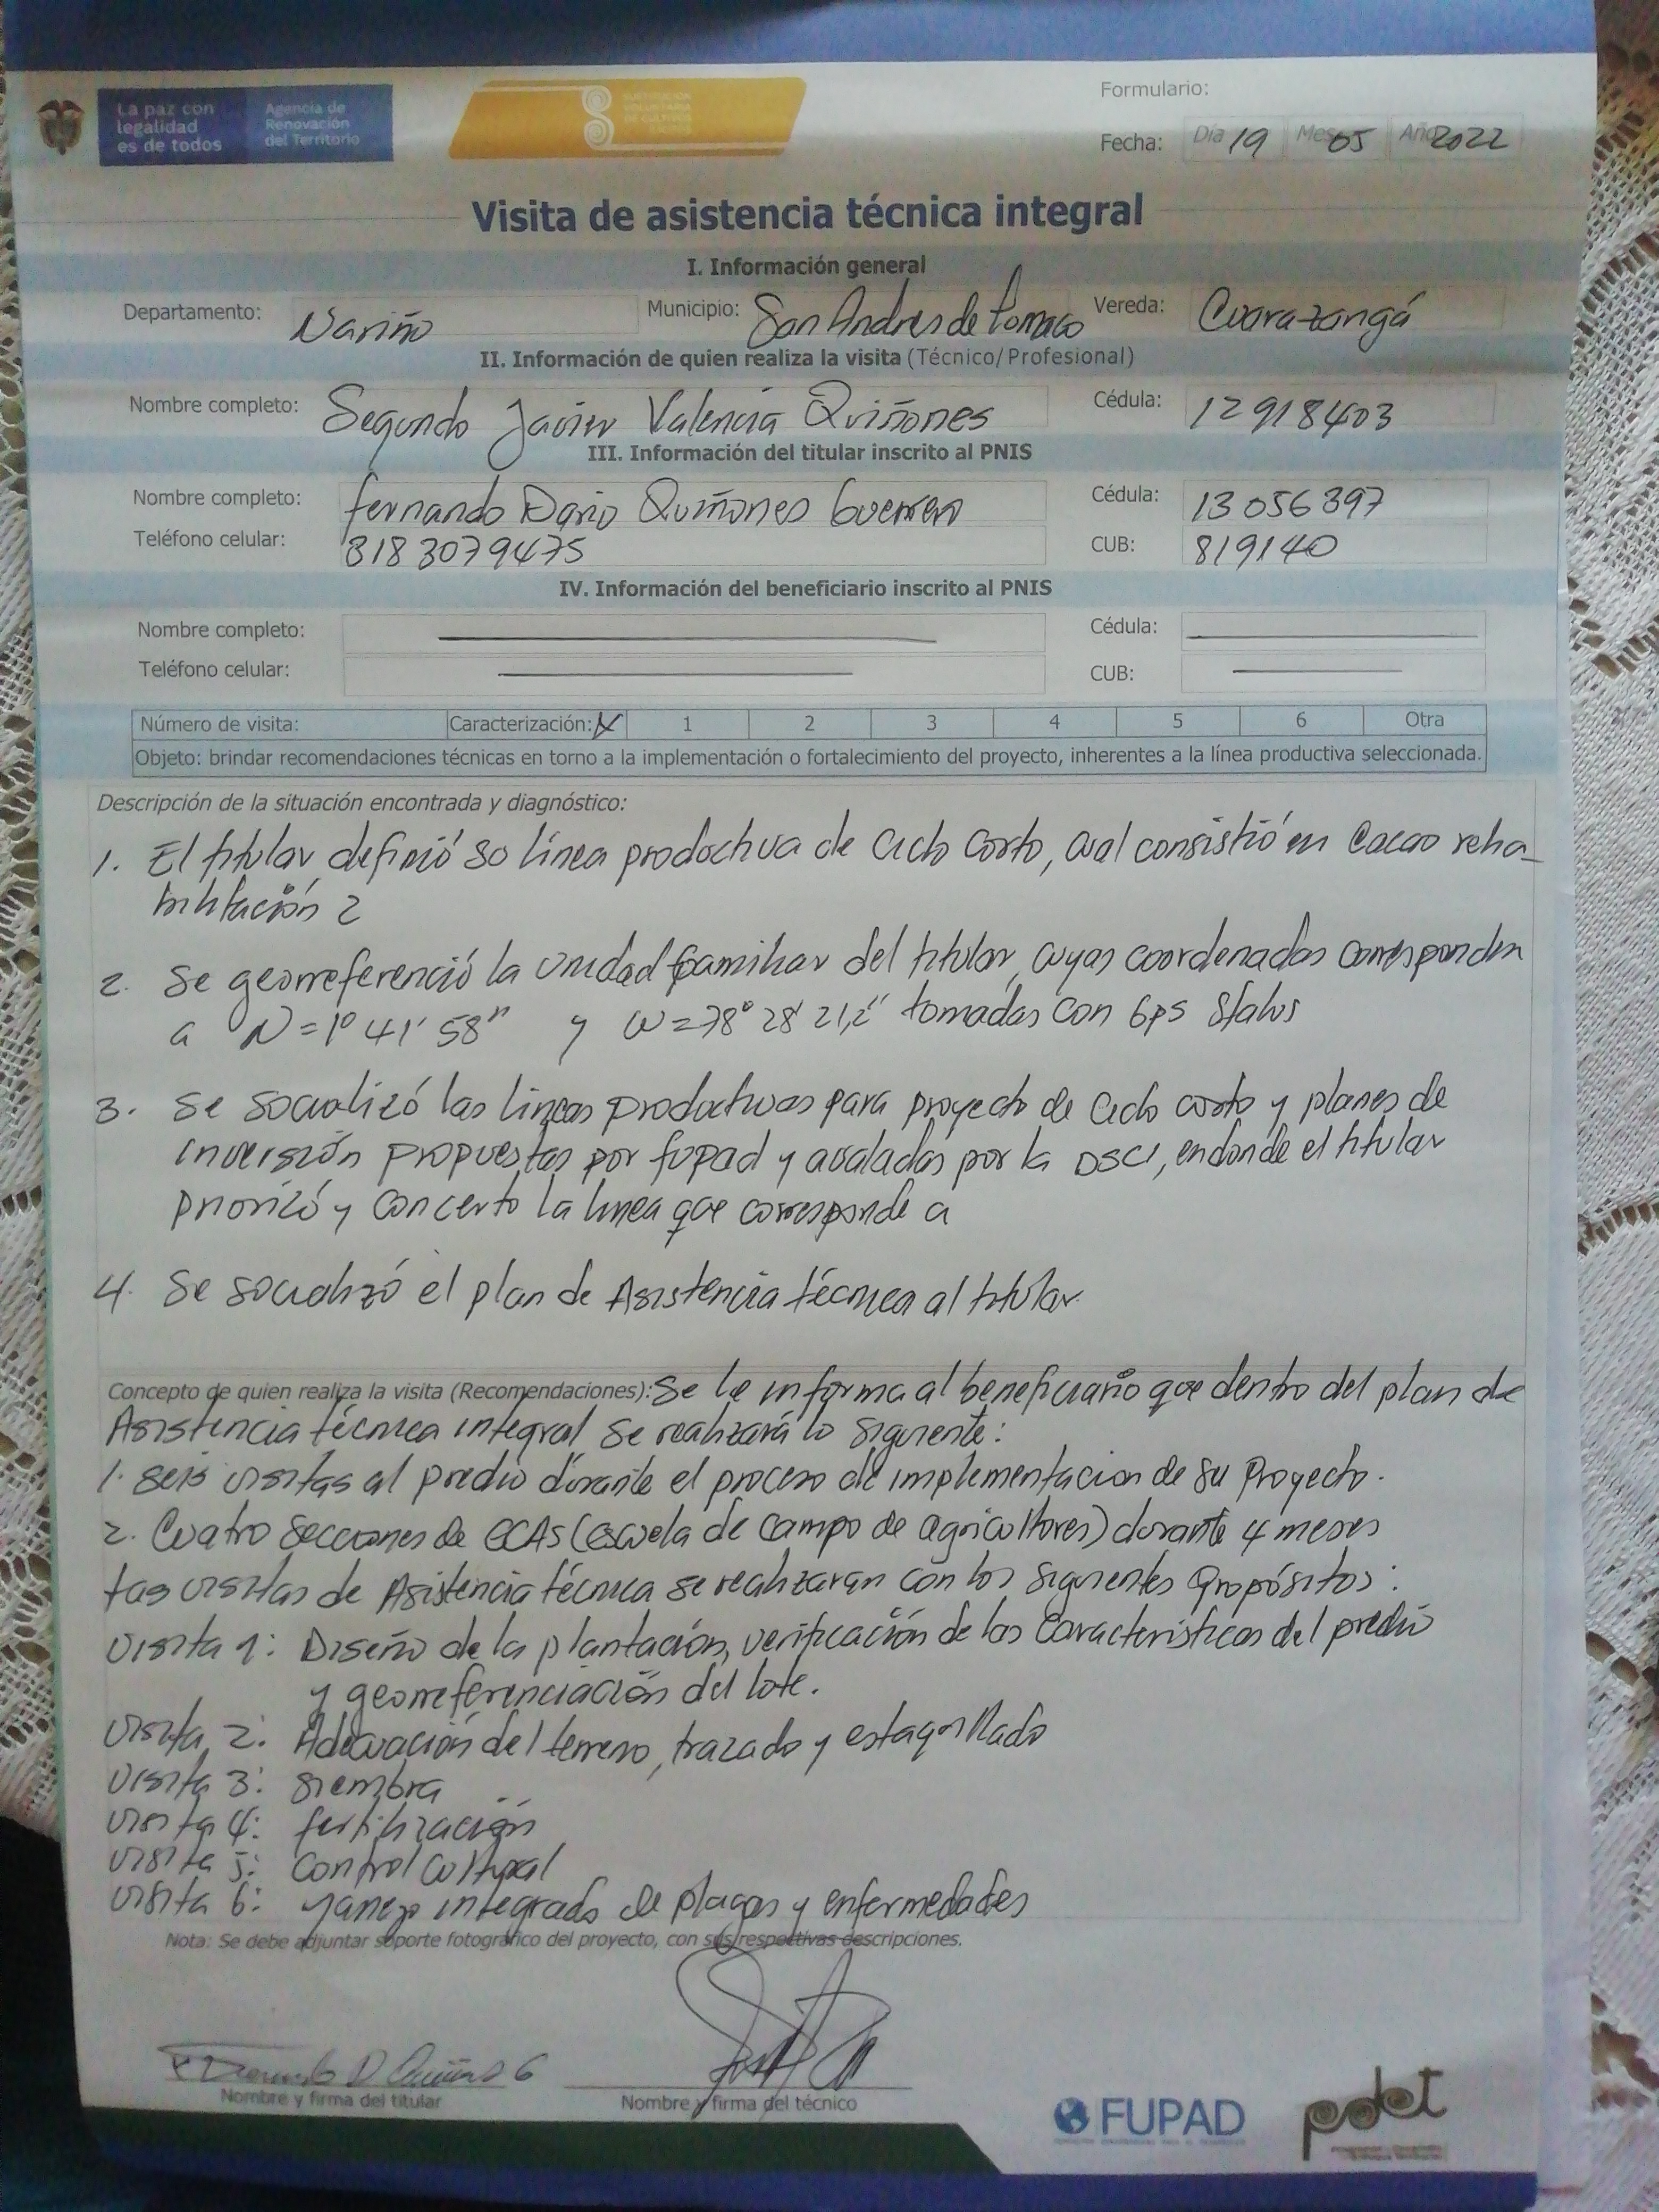 La paz con
legalidad
es de todos
Agencia de
Renovación
del Territorio
SUSTITUCIÓN
VOLUNTARIA
DE CULTIVOS
Formulario:
Fecha: Día 19 Mes 05 Año 2022
Visita de asistencia técnica integral
I. Información general
Departamento: Nariño Municipio: San Andres de tumaco Vereda: Cuarazangá
II. Información de quien realiza la visita (Técnico/Profesional)
Nombre completo: Segundo Javier Valencia Quiñones Cédula: 12918403
III. Información del titular inscrito al PNIS
Nombre completo: fernando Dario Quiñones Guerrero Cédula: 13056397
Teléfono celular: 3183079475 CUB: 819140
IV. Información del beneficiario inscrito al PNIS
Nombre completo: Cédula:
Teléfono celular: CUB:
Número de visita: Caracterización: X 1 2 3 4 5 6 Otra
Objeto: brindar recomendaciones técnicas en torno a la implementación o fortalecimiento del proyecto, inherentes a la línea productiva seleccionada.
Descripción de la situación encontrada y diagnóstico:
1. El titular definió su línea productiva de ciclo corto, cual consistió en Cacao reha-
bilitación 2
2. Se georreferenció la unidad familiar del titular, cuyas coordenadas corresponden
a N=1° 41' 58" y W=78° 28' 21,2" tomadas con Gps Status
3. Se socializó las lineas productivas para proyecto de ciclo corto y planes de
inversión propuestas por fupad y avaladas por la DSCI, en donde el titular
priorizó y concerto la linea que corresponde a
4. Se socializó el plan de Asistencia técnica al titular
Concepto de quien realiza la visita (Recomendaciones): Se le informa al beneficiario que dentro del plan de
Asistencia técnica integral se realizará lo siguiente:
1. seis visitas al predio durante el proceso de implementacion de su Proyecto.
2. Cuatro secciones de ECAS (escuela de campo de agricultores) durante 4 meses
Las visitas de Asistencia técnica se realizaran con los siguientes propósitos:
Visita 1: Diseño de la plantación, verificación de las caracteristicas del predio
y georreferenciación del lote.
Visita 2: Adecuación del terreno, trazado y estaquillado
Visita 3: siembra
Visita 4: fertilización
Visita 5: Control cultural
Visita 6: Manejo integrado de plagas y enfermedades
Nota: Se debe adjuntar soporte fotográfico del proyecto, con sus respectivas descripciones.
Nombre y firma del titular
Nombre y firma del técnico
FUPAD
pdet